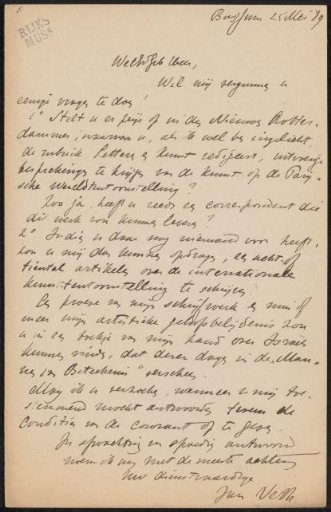 RIJKS
MUSM
Bussum 25 Mei /9
WelEd. Heer,
Wil mij vergunnen u
eenige vragen te doen!
1° Stelt u er prijs op in de Nieuwe Rotter-
dammer, waarvan u, als ik wel ben ingelicht
de rubriek Letteren en Kunst redigeert, uitvoerige
besprekingen te krijgen van de kunst op de Parij-
sche Wereldtentoonstelling?
Zoo ja, heeft u reeds een correspondent die
dit werk zou kunnen leveren?
2° Indien u daar nog niemand voor heeft,
zou u mij dan kunnen opdragen, een acht of
tiental artikelen over de internationale
kunst-tentoonstelling te schrijven?
Een proeve van mijn schrijfwerk en min of
meer mijn artistieke geloofsbelijdenis zou
u in een boekje van mijn hand over Israels
kunnen vinden, dat dezer dagen in de Man-
nen van Beteekenis verscheen.
Mag ik u verzoeken, wanneer u mij toe-
stemmend mocht antwoorden tevens de
Conditiën van de courant op te geven.
In afwachting een spoedig antwoord
noem ik mij met de meeste achting
Uw dienstwaardige
Jan Veth